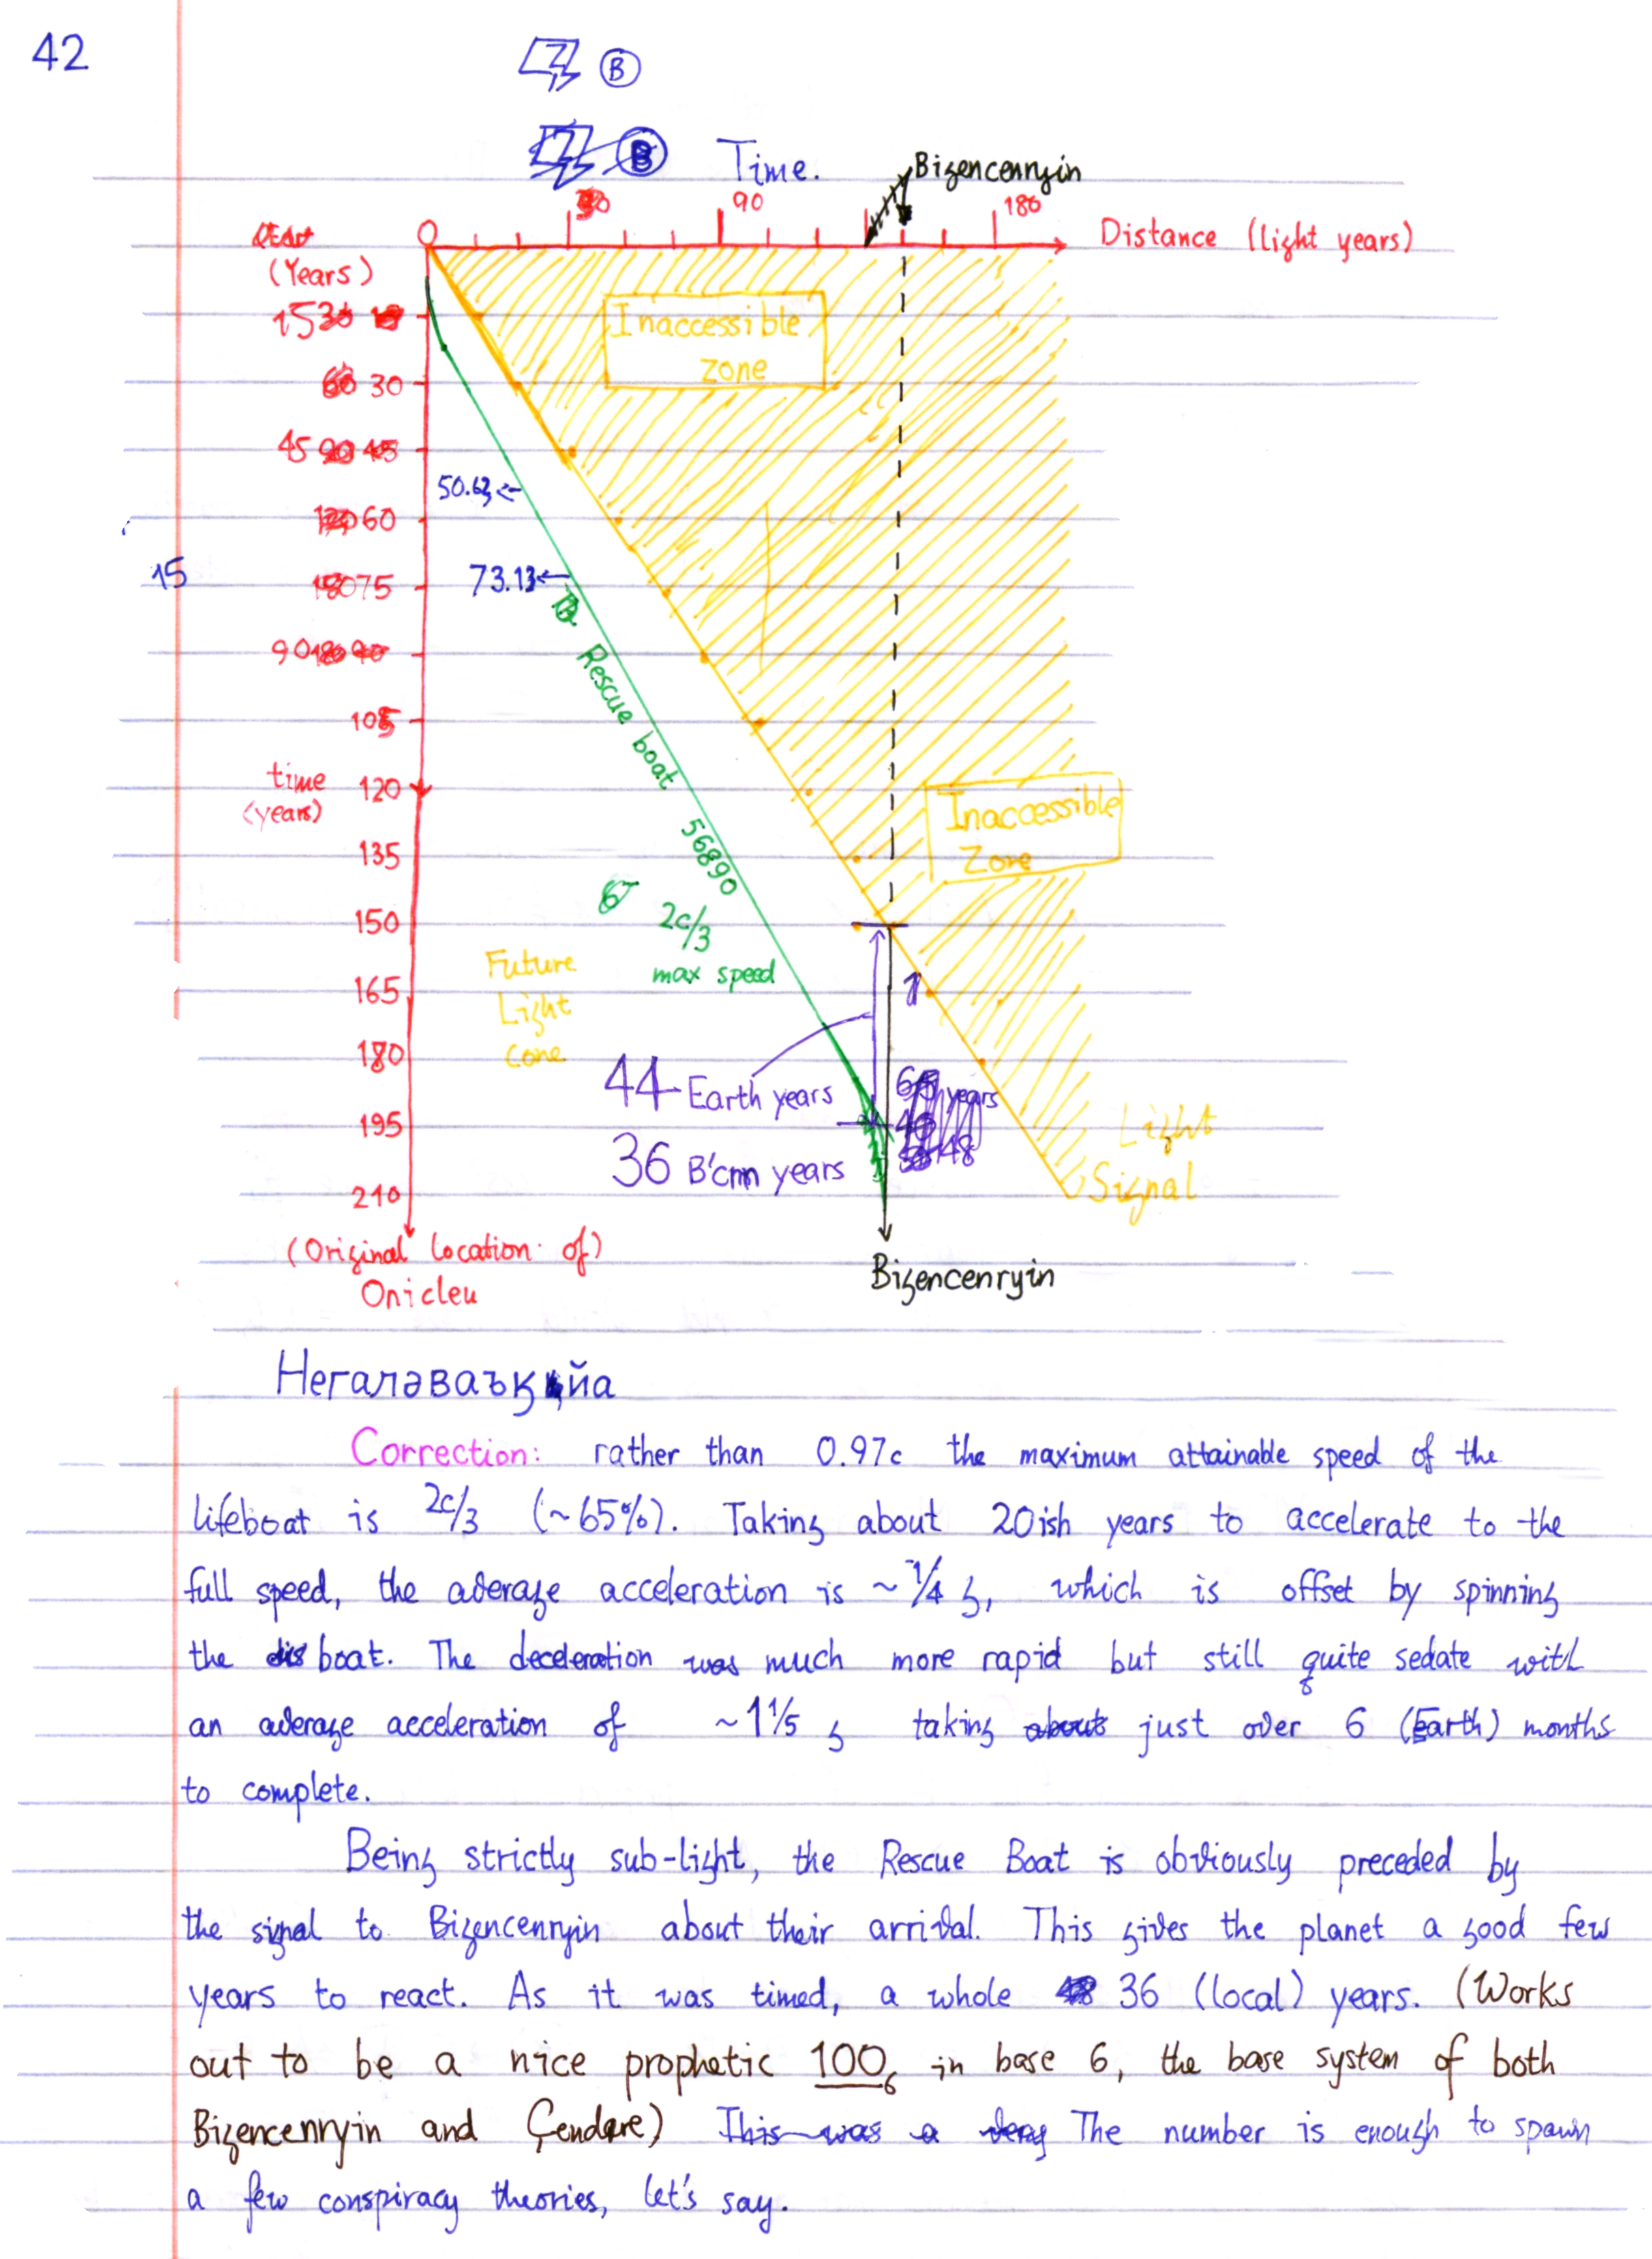 42
B
Time.
Bizencenryin
0
90
180
Distance (light years)
(Years)
15
30
45
50.63
60
15
73.13
75
90
105
time
120
(years)
135
150
165
180
195
210
Inaccessible
zone
Inaccessible
Zone
Rescue boat 56890
2c/3
max speed
Future
Light
Cone
44 Earth years
36 B'cnn years
Light
Signal
(Original location of)
Onicleu
Bizencenryin
Негалəваъқйа
Correction: rather than 0.97c the maximum attainable speed of the
lifeboat is 2c/3 (~65%). Taking about 20ish years to accelerate to the
full speed, the average acceleration is ~1/4 g, which is offset by spinning
the boat. The deceleration was much more rapid but still quite sedate with
an average acceleration of ~1 1/5 g taking about just over 6 (Earth) months
to complete.
Being strictly sub-light, the Rescue Boat is obviously preceded by
the signal to Bizencenryin about their arrival. This gives the planet a good few
years to react. As it was timed, a whole 36 (local) years. (Works
out to be a nice prophetic 100₆ in base 6, the base system of both
Bizencenryin and Çendare) This was a very The number is enough to spawn
a few conspiracy theories, let's say.